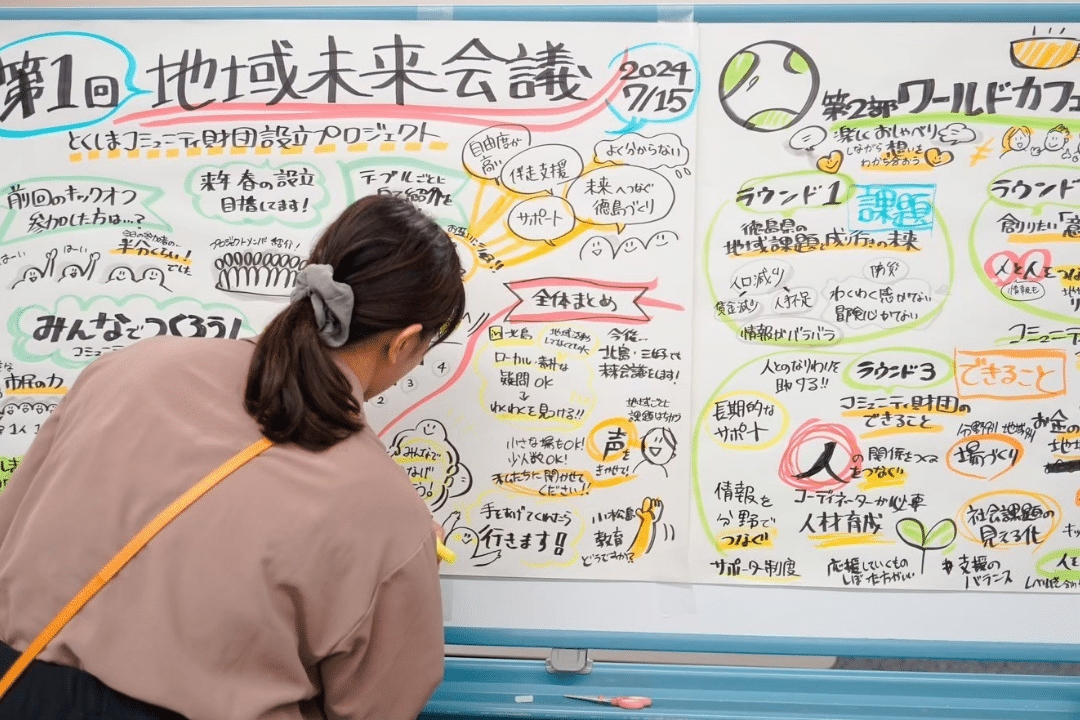 第1回
地域未来会議
2024
7/15
とくしまコミュニティ財団設立プロジェクト
前回のキックオフ
参加した方は…?
はーい
はーい
今日の参加者の…
半分くらい!
でした
来年春の設立
目標してます!
プロジェクトメンバー紹介!
テーブルごとに
紹介を
自由度が
高い
伴走支援
よく分からない
サポート
未来へつなぐ
徳島づくり
みんなでつくろう!
市民の力
4
3
2
全体まとめ
in北島
ローカル・新たな
疑問OK
↓
わくわくを見つける!!
今後…
北島・三好で
未来会議をします!
地域ごとに
課題はちがう
小さな場もOK!
少人数OK!
私たちに聞かせて
ください!!
声を
きかせて!
みんなで
つなげ
よう!
手をあげてくれたら
行きます!!
小松島
教育
どうですか?
第2部ワールドカフェ
楽しくおしゃべり
しながら想いを
わかち合おう
ラウンド1
課題
徳島県の
地域課題と成り行きの未来
人口減少
資金減少
人手不足
防災
わくわく感がない
冒険心がない
情報がバラバラ
ラウンド
創りたい「意
人と人をつな
情報も
コミュニテ
人とのなりわいを
助する!!
ラウンド3
できること
長期的な
サポート
コミュニティ財団の
できること
人の関係をつくる
をつなぐ
分野別 地域別
場づくり
お金の
地域
情報を
分野で
つなぐ
コーディネーターが必要
人材育成
社会課題の
見える化
サポーター制度
応援していくもの
しぼった方がいい
#支援の
バランス
人を